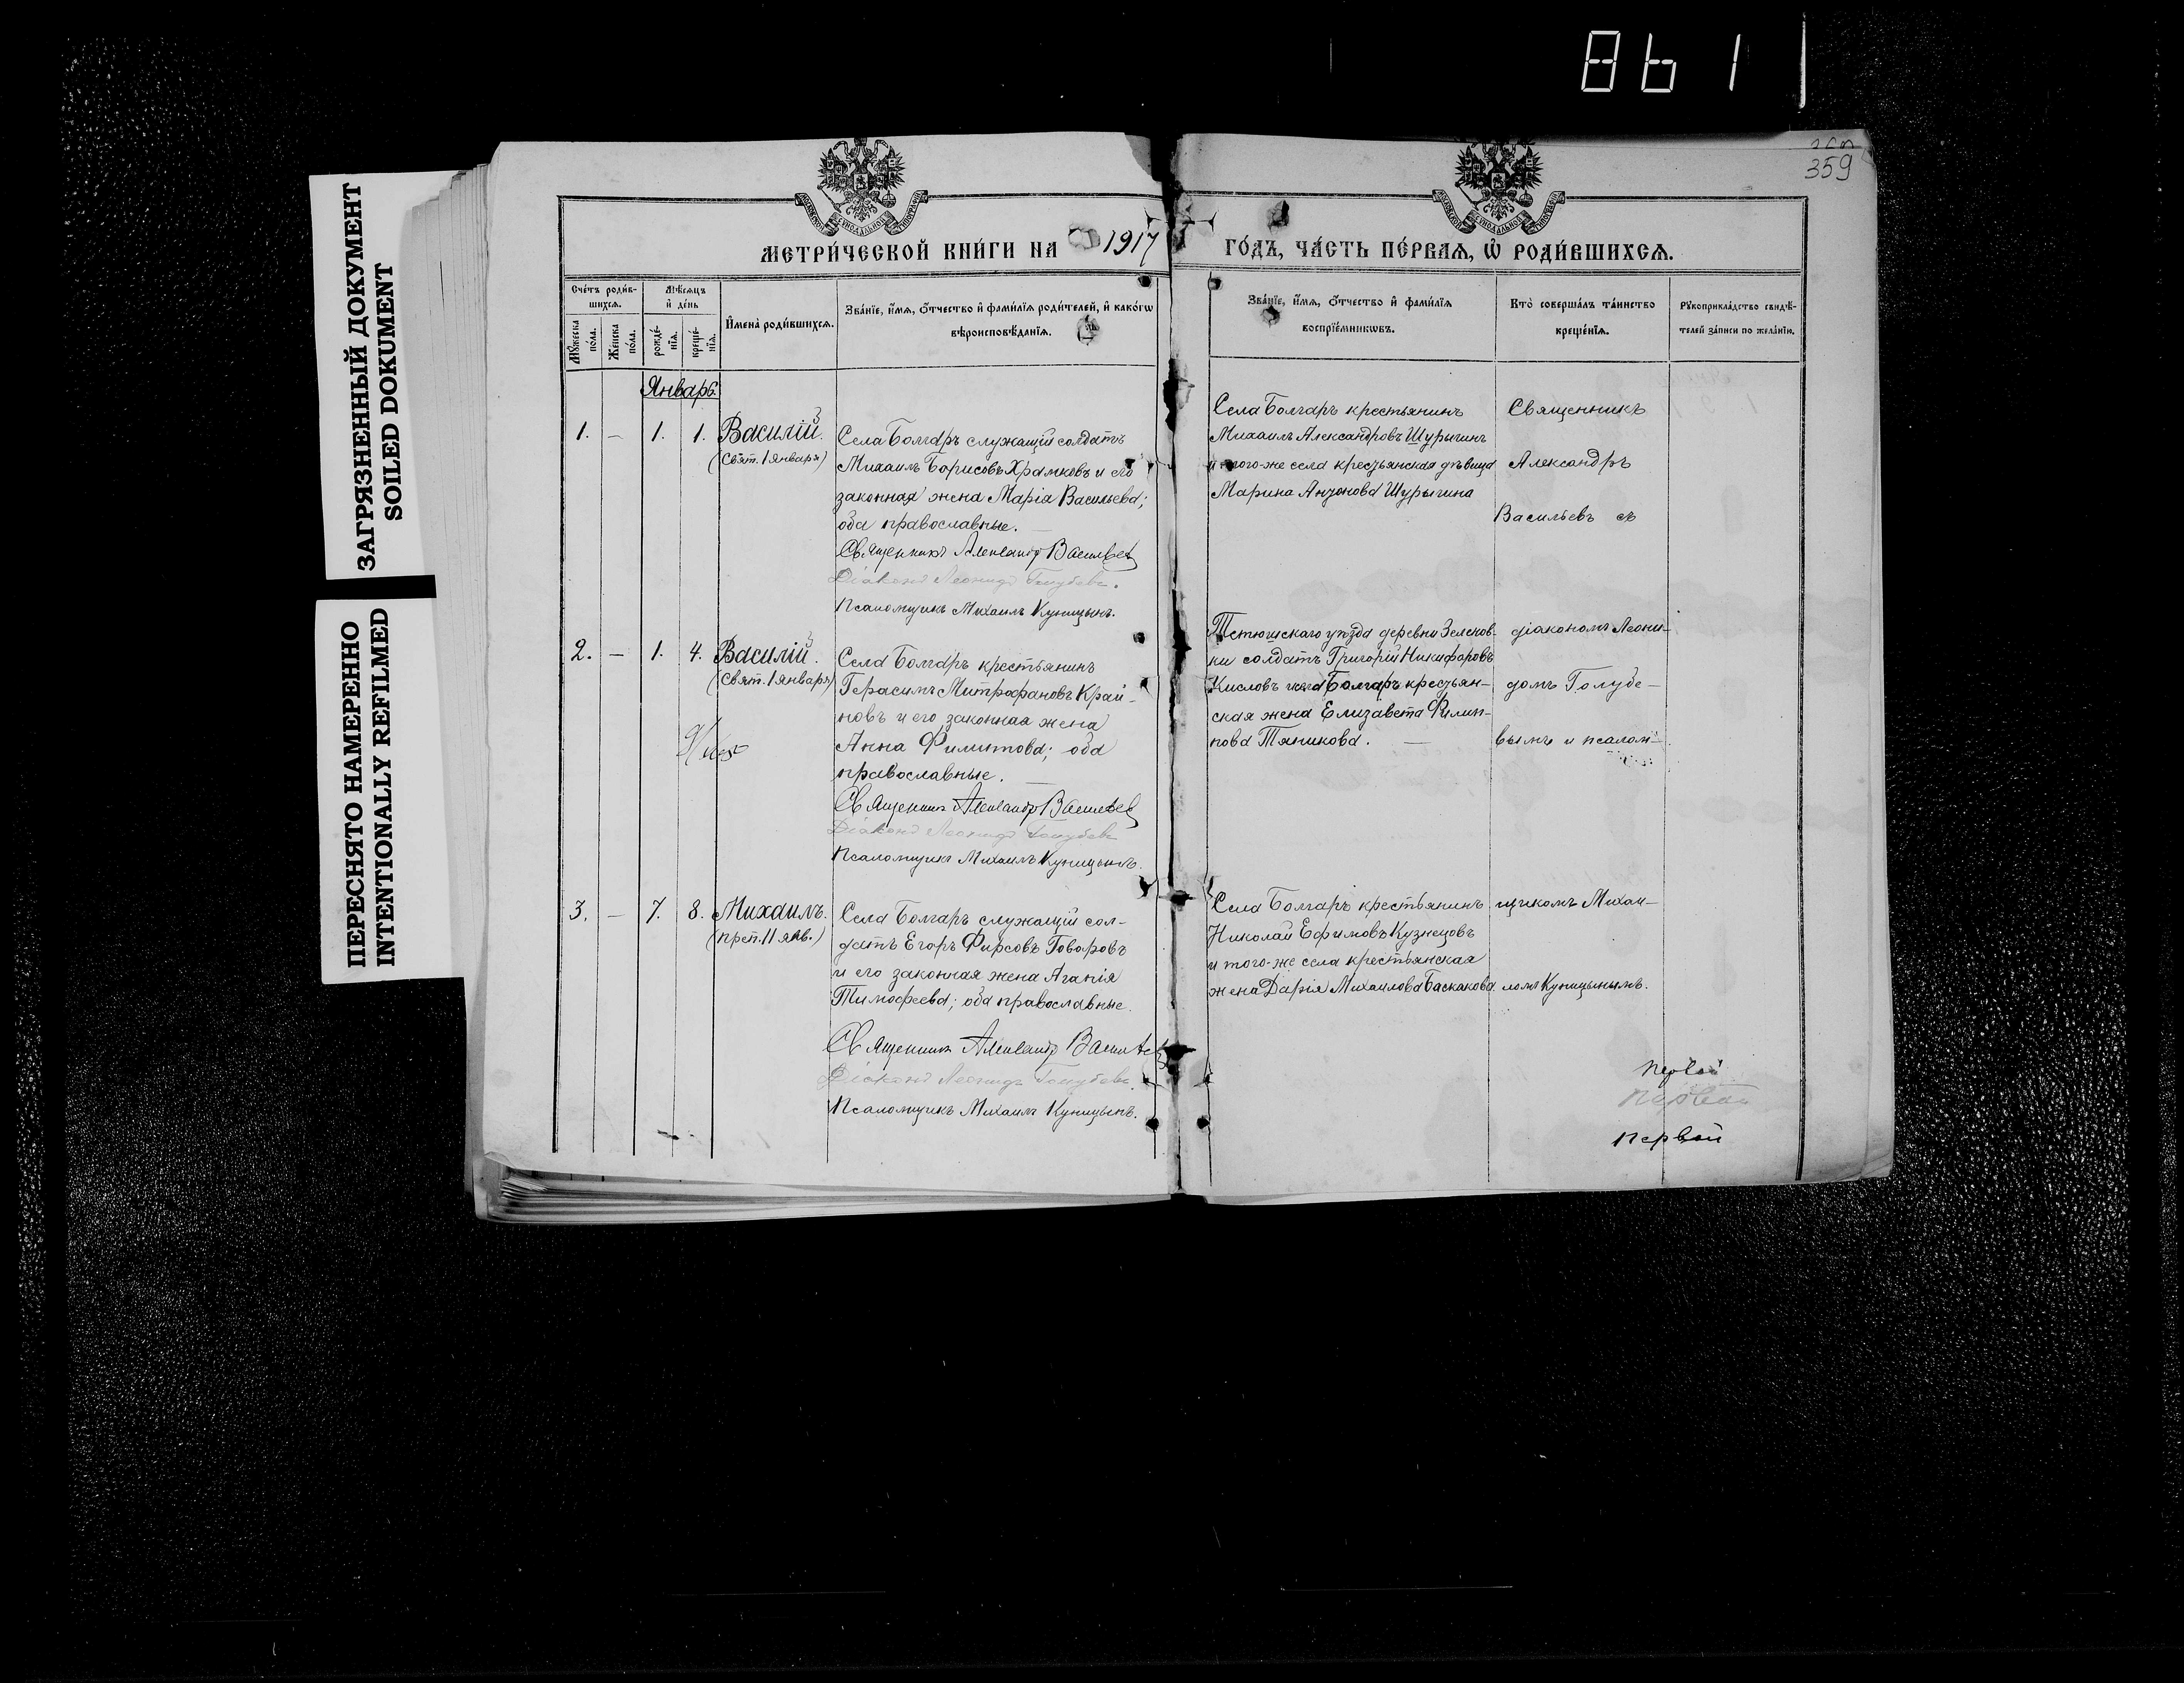 8b1
359
ЗАГРЯЗНЕННЫЙ ДОКУМЕНТ
SOILED DOKUMENT
ПЕРЕСНЯТО НАМЕРЕННО
INTENTIONALLY REFILMED
МЕТРИ́ЧЕСКОЙ КНИ́ГИ НА 1917
ГО́ДЪ, ЧА́СТЬ ПЕ́РВАѦ, Ѡ҆ РОДИ́ВШИХСѦ.
Сче́тъ роди́в-
шихсѧ.
Мѣ́сѧцъ
и҆ де́нь
Мꙋ́жеска
по́ла.
Же́нска
по́ла.
рожде́-
нїѧ.
креще́-
нїѧ.
И҆мена̀ роди́вшихсѧ.
Зва́нїе, и҆́мѧ, о҆́тчество и҆ фами́лїѧ роди́телей, и҆ како́гѡ
вѣроисповѣ́данїѧ.
Зва́нїе, и҆́мѧ, о҆́тчество и҆ фами́лїѧ
воспрїе́мникѡвъ.
Кто̀ соверша́лъ та́инство
креще́нїѧ.
Рꙋкоприкла́дство свидѣ́-
телей за́писи по жела́нїю.
Январь
1. — 1. 1. Василій.
(Свят. 1 января)
Села Болгаръ служащій солдатъ
Михаилъ Борисовъ Храмковъ и его
законная жена Марія Васильева;
оба православные. —
Священникъ Александр Васильев
Діаконъ Леонидъ Голубевъ.
Псаломщикъ Михаилъ Куницынъ.
Села Болгаръ крестьянинъ
Михаилъ Александровъ Шурыгинъ
и того-же села крестьянская дѣвица
Марина Антонова Шурыгина
Священникъ
Александръ
Васильевъ съ
2. — 1. 4. Василій.
(Свят. 1 января)
Села Болгаръ крестьянинъ
Герасимъ Митрофановъ Край-
новъ и его законная жена
Анна Филиппова; оба
православные. —
Священник Александр Васильев
Діаконъ Леонидъ Голубевъ
Псаломщикъ Михаилъ Куницынъ.
Тетюшскаго уѣзда деревни Зеленов-
ки солдатъ Григорій Никифоровъ
Кисловъ и села Болгаръ крестьян-
ская жена Елизавета Филип-
пова Тяникова. —
діакономъ Леони-
домъ Голубе-
вымъ и псалом-
3. — 7. 8. Михаилъ.
(Преп. 11 янв.)
Села Болгаръ служащій сол-
датъ Егоръ Фирсовъ Говоровъ
и его законная жена Агапія
Тимофеева; оба православные.
Священник Александр Васильев
Діаконъ Леонидъ Голубевъ.
Псаломщикъ Михаилъ Куницынъ.
Села Болгаръ крестьянинъ
Николай Ефимовъ Кузнецовъ
и того-же села крестьянская
жена Дарія Михаилова Баскакова
щикомъ Михаи-
ломъ Куницынымъ.
первой
первой
первой